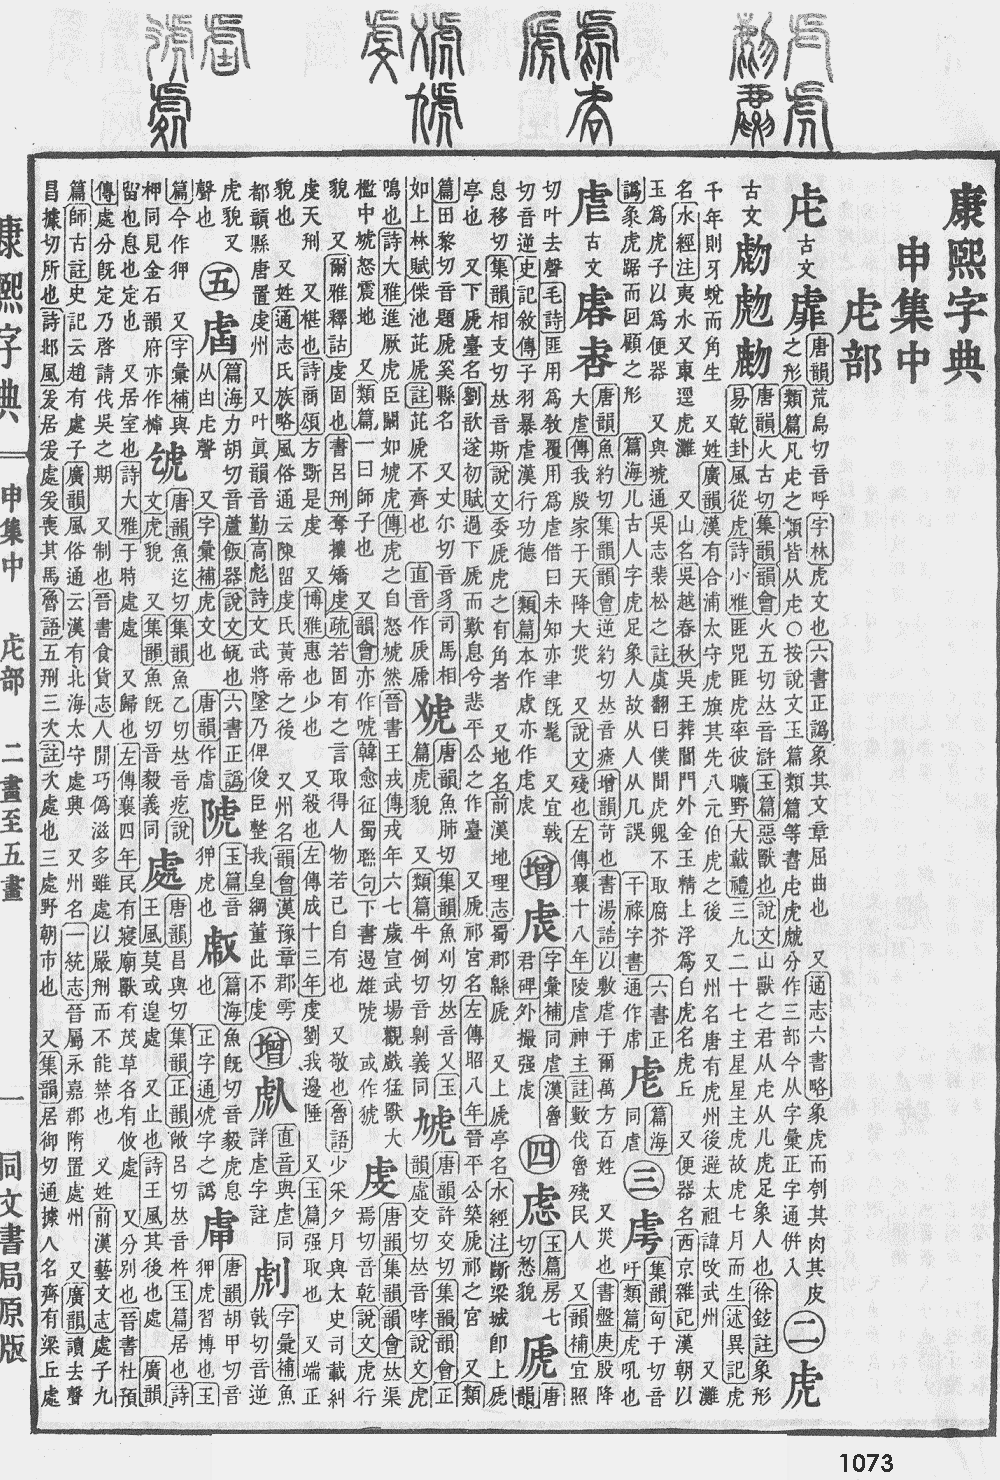 康熙字典
申集中
虍部
虍 古文 虎 唐韻荒烏切音呼字林虎文也六書正譌象其文章屈曲也 又通志六書略象虎而刳其肉其皮
之形類篇凡虍之類皆从虍○按說文玉篇類篇等書虍虎虤分作三部今从字彙正字通倂入 二 虎
古文 唐韻火古切集韻韻會火五切𠀤音滸玉篇惡獸也說文山獸之君从虍从儿虎足象人也徐鉉註象形
易乾卦風從虎詩小雅匪兕匪虎率彼曠野大戴禮三九二十七主星星主虎故虎七月而生述異記虎
千年則牙蛻而角生 又姓廣韻漢有合浦太守虎旗其先八元伯虎之後 又州名唐有虎州後避太祖諱改武州 又灘
名水經注夷水又東逕虎灘 又山名吳越春秋吳王葬閶門外金玉精上浮爲白虎名虎丘 又便器名西京雜記漢朝以
玉爲虎子以爲便器 又與琥通吳志裴松之註虞翻曰僕聞虎魄不取腐芥 六書正
譌象虎踞而回顧之形 篇海儿古人字虎足象人故从人从几誤 干祿字書通作虎 篇海同虐 三 虗 集韻匈于切音吁類篇虎吼也
虐 古文 唐韻魚約切集韻韻會逆約切𠀤音瘧增韻苛也書湯誥以敷虐于爾萬方百姓 又災也書盤庚殷降
大虐傳我殷家于天降大災 又說文殘也左傳襄十八年陵虐神主註數伐魯殘民人 又韻補宜照
切叶去聲毛詩匪用爲敎覆用爲虐借曰未知亦聿旣髦 又宜戟
切音逆史記敘傳子羽暴虐漢行功德 類篇本作虐亦作虐 增 字彙補同虐漢魯君碑外撮强虐 四 虙 玉篇房七切愁貌 虒 唐韻
息移切集韻相支切𠀤音斯說文委虒虎之有角者 又地名前漢地理志蜀郡縣虒 又上虒亭名水經注斷梁城卽上虒
亭也 又下虒臺名劉歆遂初賦過下虒而歎息兮悲平公之作臺 又虒祁宮名左傳昭八年晉平公築虒祁之宮 又類
篇田黎切音題虒奚縣名 又丈尔切音豸司馬相
如上林賦傑池茈虒註茈虒不齊也 直音作虒 唐韻魚肺切集韻魚刈切𠀤音乂玉篇虎貌 又類篇牛例切音剿義同 虓 唐韻許交切集韻韻會正韻虛交切𠀤音哮說文虎
鳴也詩大雅進厥虎臣闞如虓虎傳虎之自怒虓然晉書王戎傳戎年六七歲宣武場觀戲猛獸大
檻中虓怒震地 又類篇一曰師子也 又韻會亦作唬韓愈征蜀聯句下書遏雄唬 或作猇 虔 唐韻集韻韻會𠀤渠焉切音乾說文虎行
貌 又爾雅釋詁虔固也書呂刑奪攘矯虔疏若固有之言取得人物若已自有也 又敬也魯語少采夕月與大史司載糾
虔天刑 又椹也詩商頌方斲是虔 又博雅惠也少也 又殺也左傳成十三年虔劉我邊陲 又玉篇强取也 又端正
貌也 又姓通志氏族略風俗通云陳留虔氏黃帝之後 又州名韻會漢豫章郡雩
都贛縣唐置虔州 又叶眞韻音勤高彪詩文武將墜乃俾俊臣整我皇綱董此不虔 增 直音與虐同詳虐字註 字彙補魚戟切音逆
虎貌又聲也 五 篇海力胡切音蘆飯器說文㼧也从甾虍聲 又字彙補虎文也 六書正譌唐韻作虘 虠 玉篇音狎虎也 篇海魚旣切音毅虎息也 正字通虓字之譌 唐韻胡甲切音狎虎習搏也玉
篇今作狎 又字彙補與柙同見金石韻府亦作㭱 唐韻魚迄切集韻魚乙切𠀤音疙說文虎貌 又集韻魚旣切音毅義同 處 唐韻昌與切集韻正韻敞呂切𠀤音杵玉篇居也詩王風莫或遑處 又止也詩王風其後也處 廣韻
留也息也定也 又居室也詩大雅于時處處 又歸也左傳襄四年民有寢廟獸有茂草各有攸處 又分別也晉書杜預
傳處分旣定乃啓請伐吳之期 又制也晉書食貨志人閒巧僞滋多雖處以嚴刑而不能禁也 又姓前漢藝文志處子九
篇師古註史記云趙有處子廣韻風俗通云漢有北海太守處興 又州名一統志晉屬永嘉郡隋置處州 又廣韻讀去聲
昌據切所也詩邶風爰居爰處爰喪其馬魯語五刑三次註次處也三處野朝市也 又集韻居御切通據人名齊有梁丘處
康熙字典
申集中 虍部 二畫至五畫
一
同文書局原版
1073